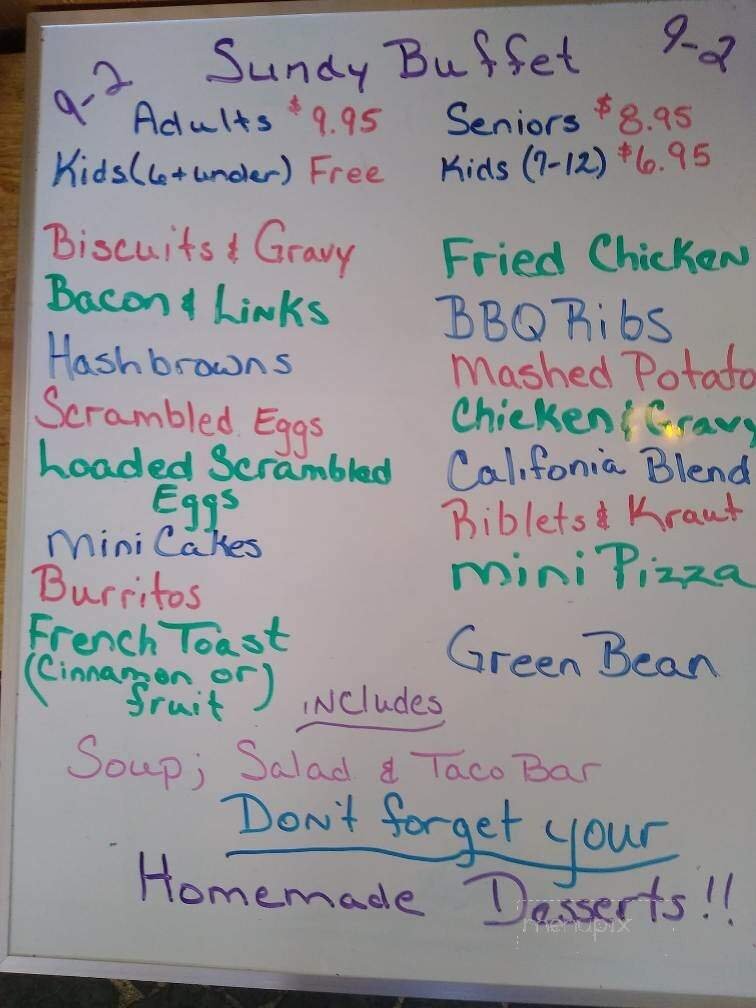 9-2 Sundy Buffet 9-2
Adults $9.95 Seniors $8.95
Kids (6+under) Free Kids (7-12) $6.95
Biscuits & Gravy
Bacon & Links
Hashbrowns
Scrambled Eggs
Loaded Scrambled
Eggs
Mini Cakes
Burritos
French Toast
(Cinnamon or)
fruit
Fried Chicken
BBQ Ribs
Mashed Potato
Chicken & Gravy
Califonia Blend
Riblets & Kraut
mini Pizza
Green Bean
includes
Soup; Salad & Taco Bar
Don't forget your
Homemade Desserts!!
menupix